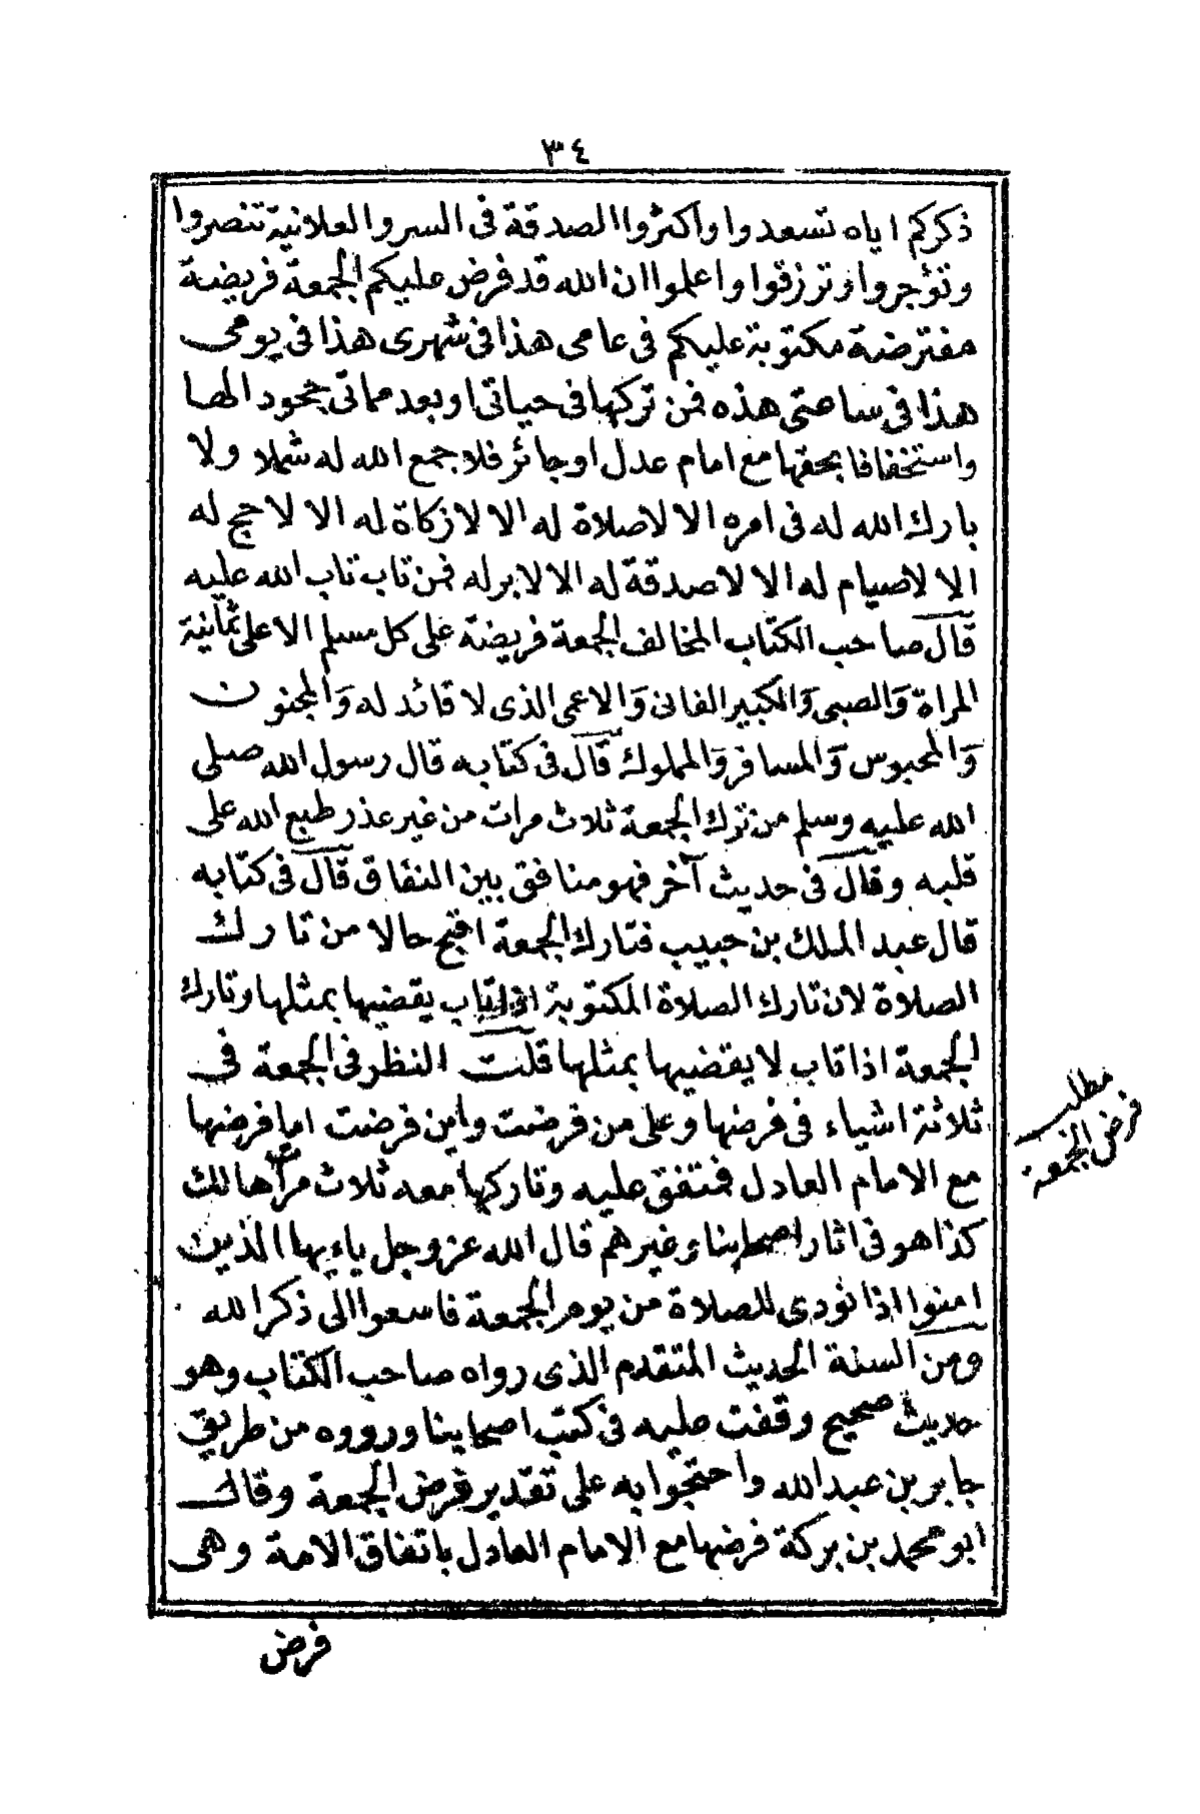 ٣٤
ذكركم اياه تسعدوا واكثروا الصدقة فى السر والعلانية تنصروا
وتؤجروا وترزقوا واعلموا ان الله قد فرض عليكم الجمعة فريضة
مفترضة مكتوبة عليكم فى عامى هذا فى شهرى هذا فى يومى
هذا فى ساعتى هذه فمن تركها فى حياتى او بعد مماتى جحودا لها
واستخفافا بحقها مع امام عدل او جائر فلا جمع الله له شملا ولا
بارك الله له فى امره الا لا صلاة له الا لا زكاة له الا لا حج له
الا لا صيام له الا لا صدقة له الا لا بر له فمن تاب تاب الله عليه
قال صاحب الكتاب المخالف الجمعة فريضة على كل مسلم الا على ثمانية
المراة والصبى والكبير الفانى والاعمى الذى لا قائد له والمجنون
والمحبوس والمسافر والمملوك قال فى كتابه قال رسول الله صلى
الله عليه وسلم من ترك الجمعة ثلاث مرات من غير عذر طبع الله على
قلبه وقال فى حديث آخر فهو منافق بين النفاق قال فى كتابه
قال عبد الملك بن حبيب فتارك الجمعة اقبح حالا من تارك
الصلاة لان تارك الصلاة المكتوبة اذا تاب يقضيها بمثلها وتارك
الجمعة اذا تاب لا يقضيها بمثلها قلت النظر فى الجمعة فى
ثلاثة اشياء فى فرضها وعلى من فرضت واين فرضت اما فرضها
مع الامام العادل فمتفق عليه وتاركها معه ثلاث مرات هالك
كذا هو فى اثار اصحابنا وغيرهم قال الله عز وجل ياءيها الذين
امنوا اذا نودى للصلاة من يوم الجمعة فاسعوا الى ذكر الله
ومن السنة الحديث المتقدم الذى رواه صاحب الكتاب وهو
حديث صحيح وقفت عليه فى كتب اصحابنا ورووه من طريق
جابر بن عبد الله واحتجوا به على تقدير فرض الجمعة وقال
ابو محمد بن بركة فرضها مع الامام العادل باتفاق الامة وهى
فرض
مطلب
فرض الجمعة